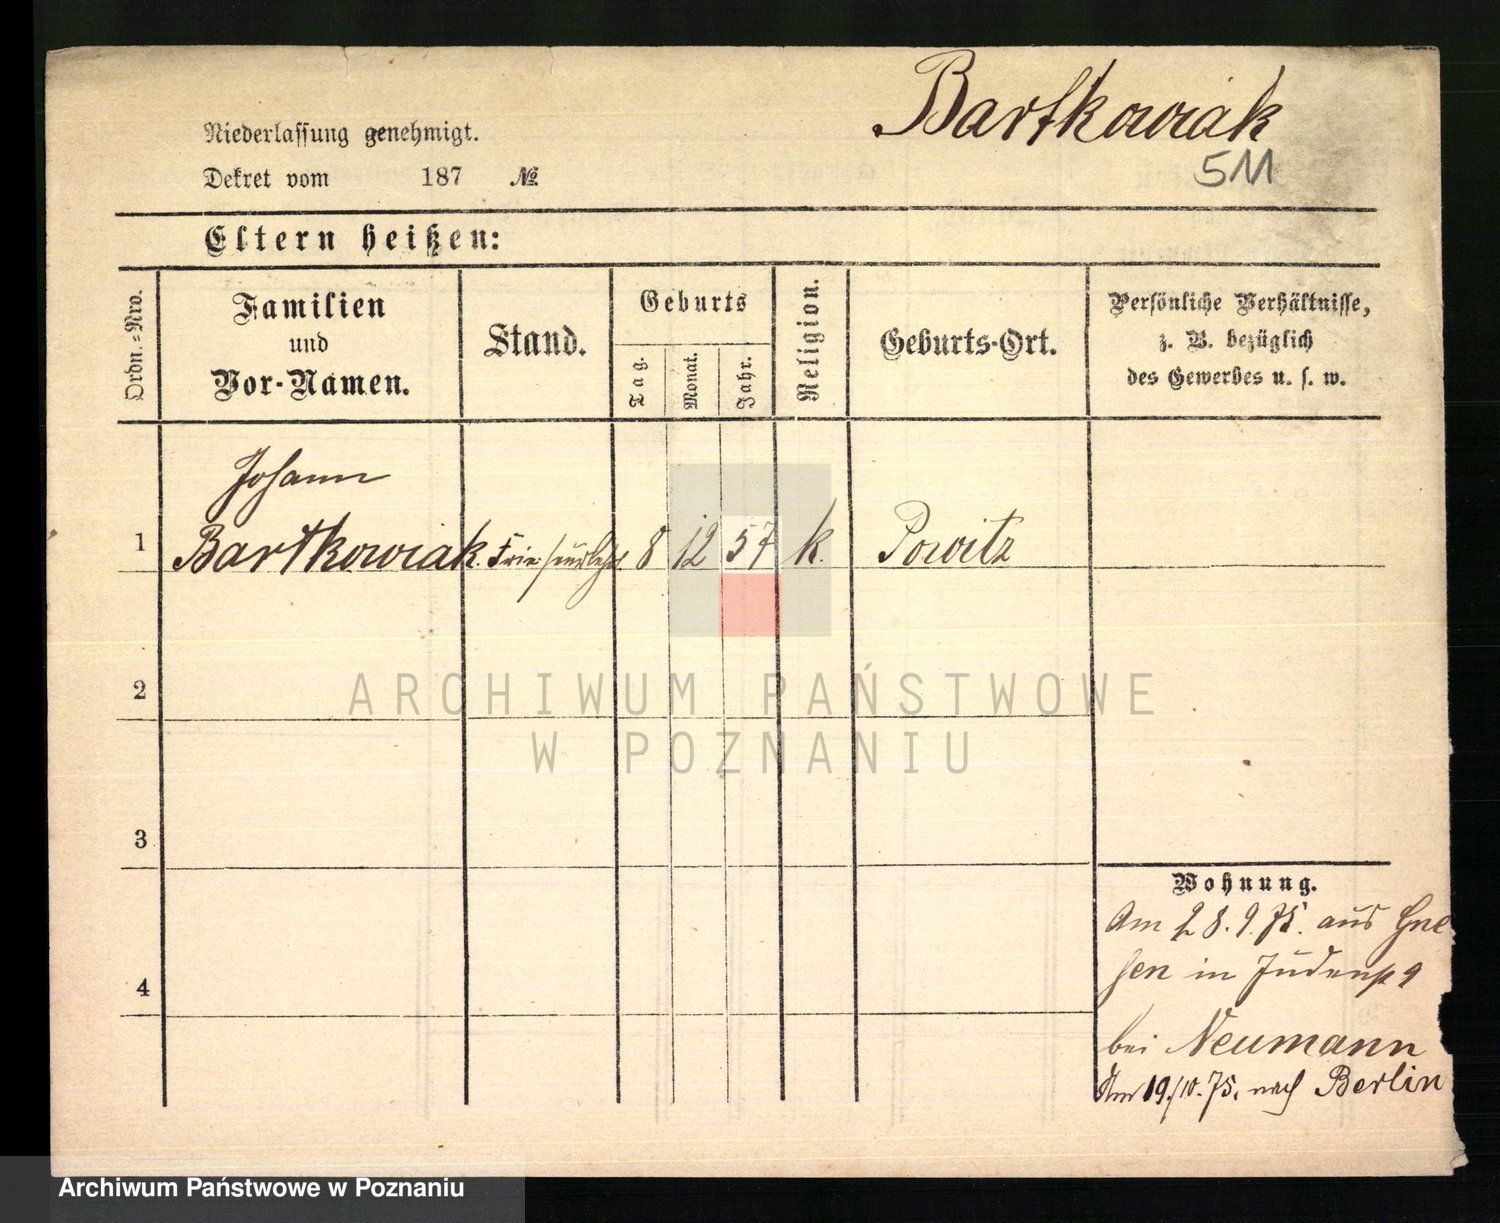 Bartkowiak
511
Niederlassung genehmigt.
Dekret vom 187 №
Eltern heißen:
Ordn.-Nro.
Familien
und
Vor-Namen.
Stand.
Geburts
Tag.
Monat.
Jahr.
Religion.
Geburts-Ort.
Persönliche Verhältnisse,
z. B. bezüglich
des Gewerbes u. s. w.
Johann
1 Bartkowiak. 8 12 57 k. Powitz
2
3
4
Wohnung.
Am 28.9.75. aus Gne
sen in Judenstr 9
bei Neumann
Am 19/10.75. nach Berlin
ARCHIWUM PAŃSTWOWE
W POZNANIU
Archiwum Państwowe w Poznaniu